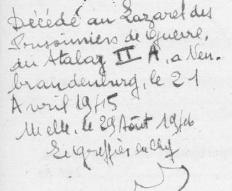 Décédé au Lazaret des
Prisonniers de Guerre,
du Stalag II A, a Neu-
brandenburg, le 21
Avril 1945
Melle, le 29 Août 19
Le greffier en chef